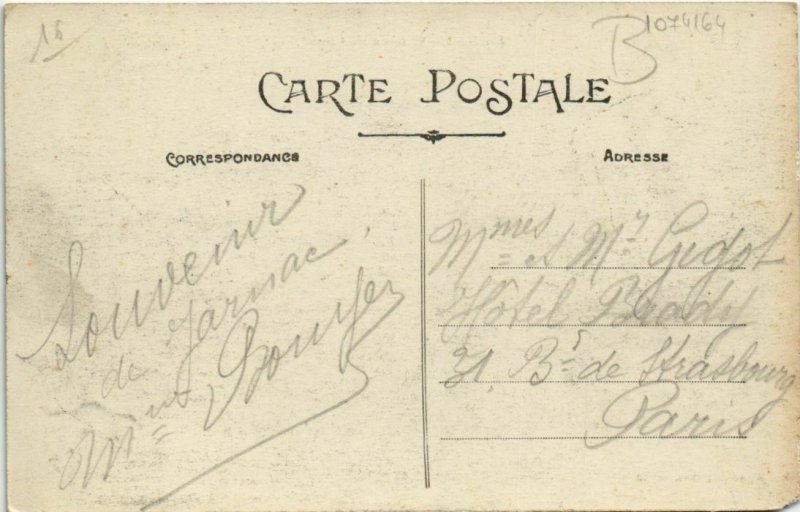 16
B 1074164
CARTE POSTALE
CORRESPONDANCE
ADRESSE
Souvenir
de Jarnac.
Mme
Mmes et Mr Gidot
Hôtel Brady
31, Bd de Strasbourg
Paris